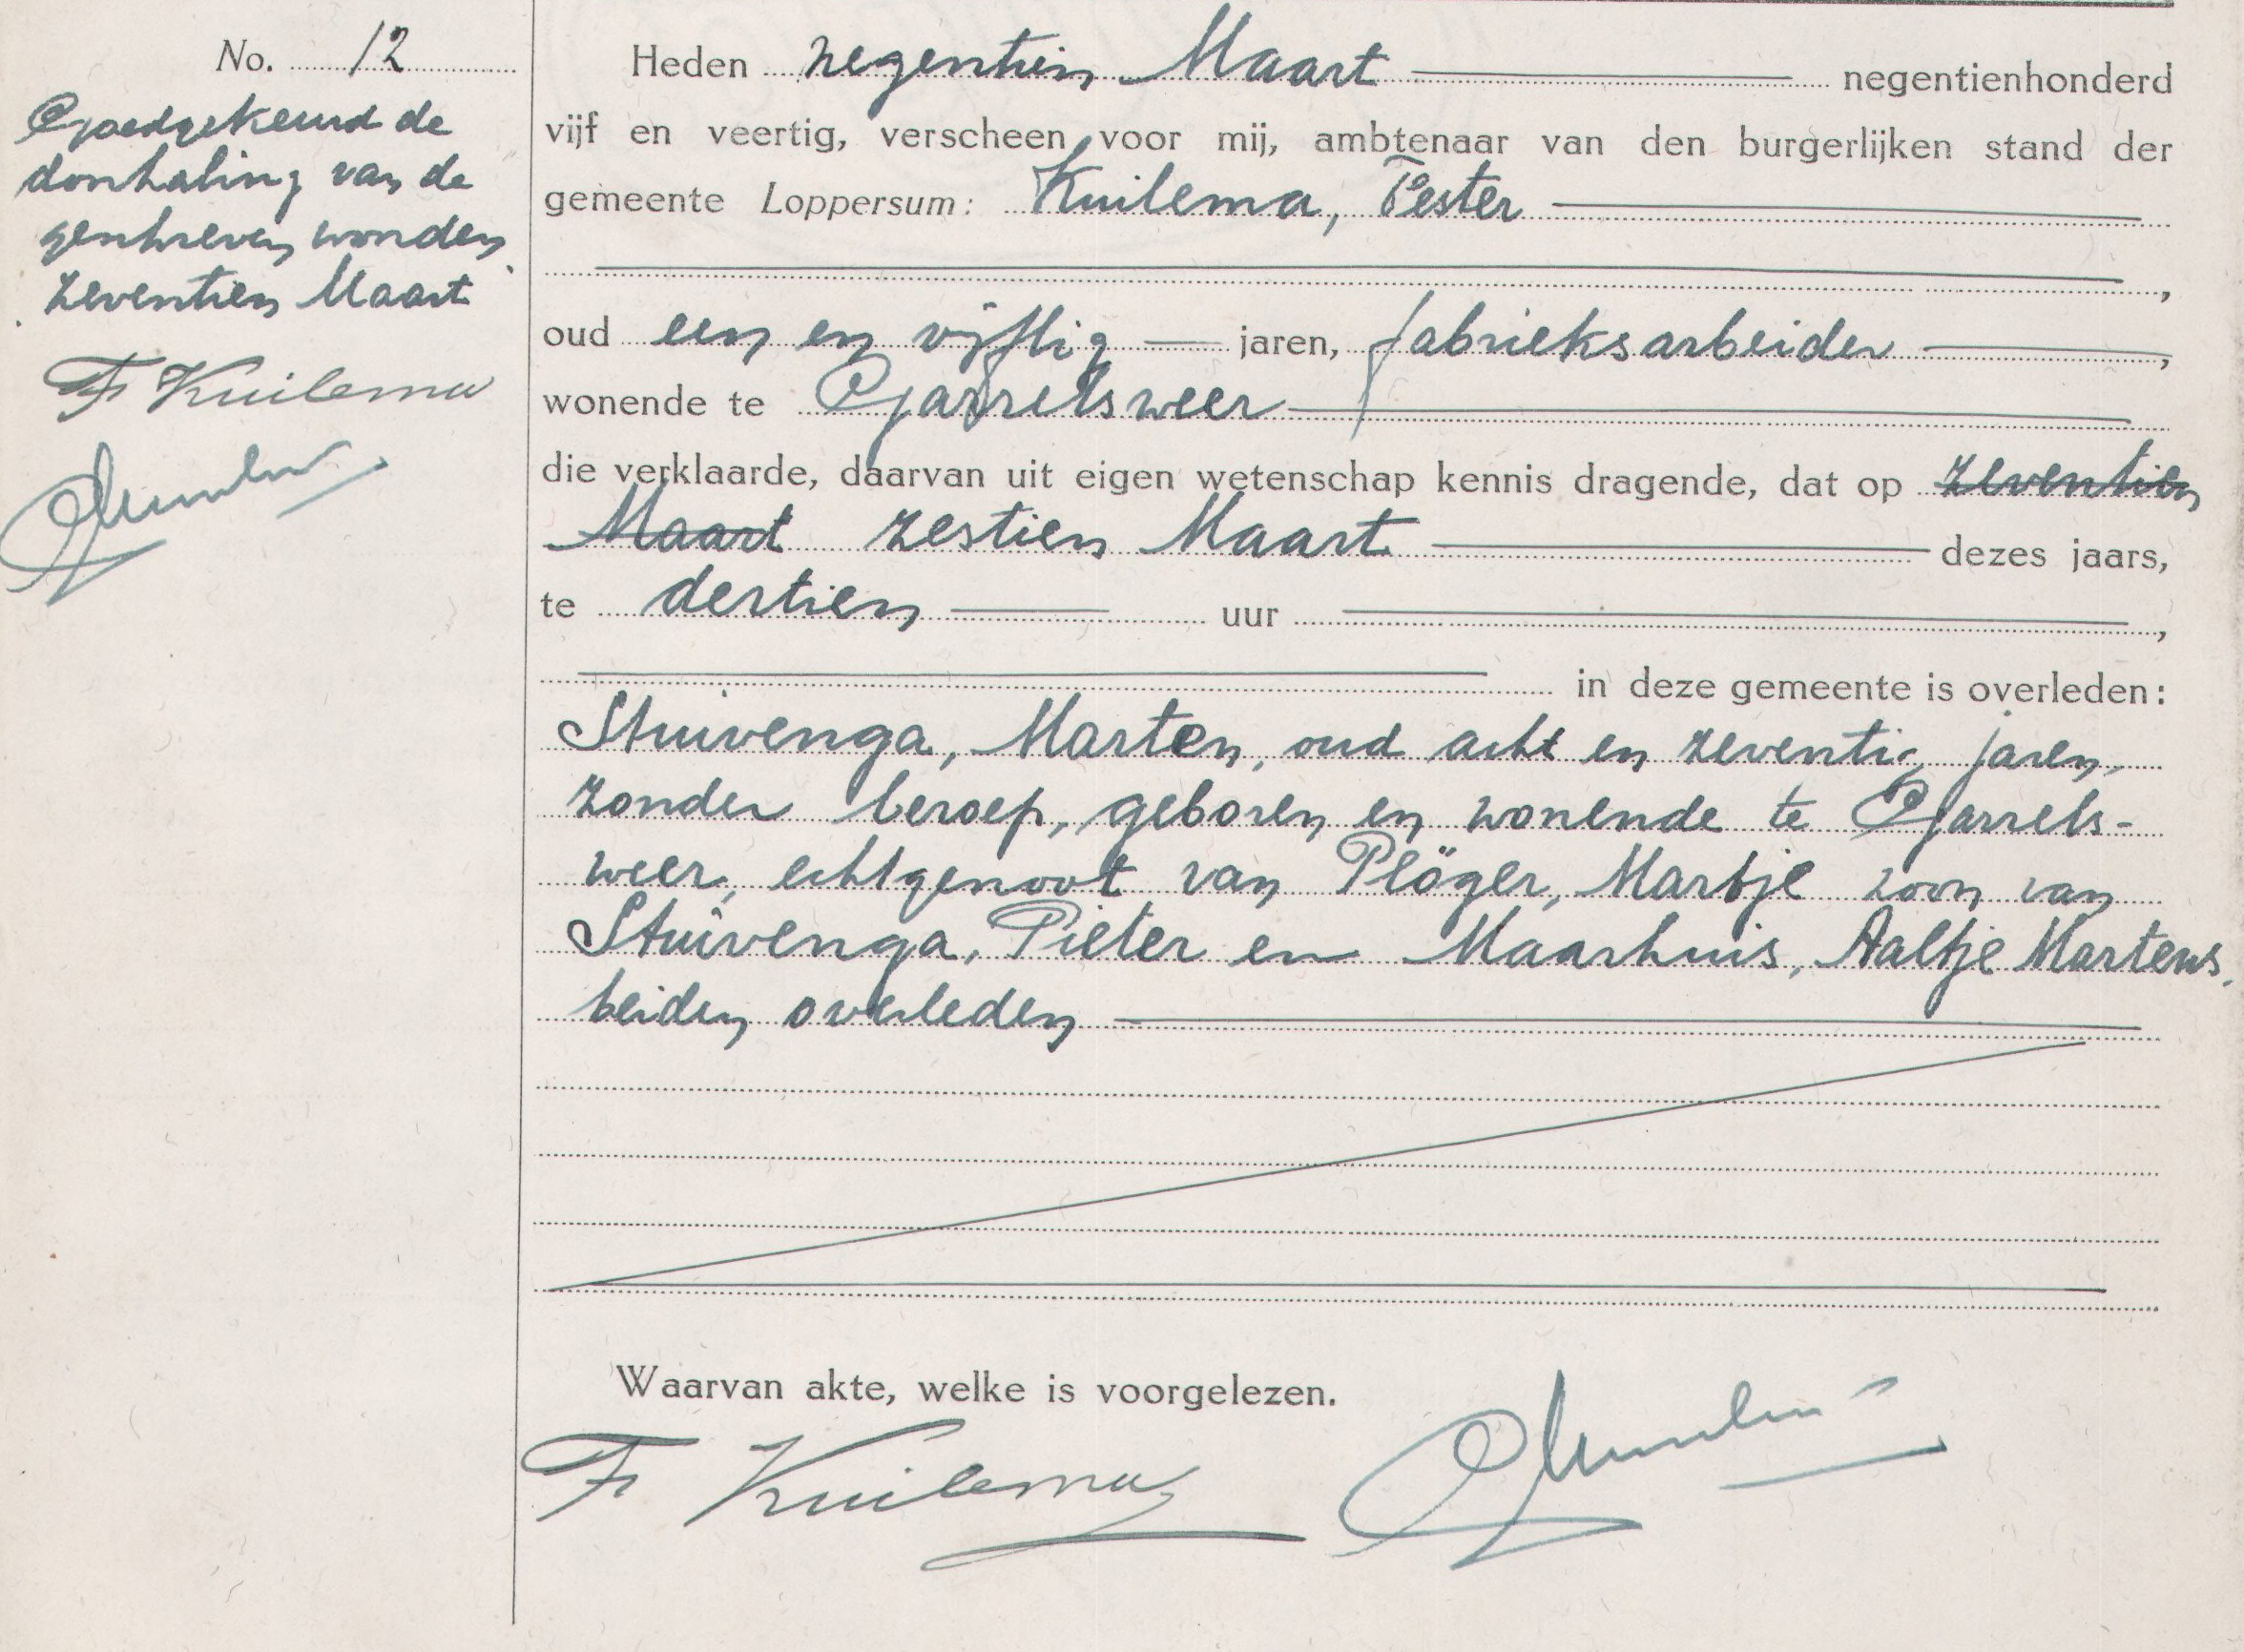 No. 12
Goedgekeurd de
doorhaling van de
geschreven woorden
zeventien Maart
F Kuilema
Heden negentien Maart negentienhonderd
vijf en veertig, verscheen voor mij, ambtenaar van den burgerlijken stand der
gemeente Loppersum: Kuilema, Fester
,
oud een en vijftig jaren, fabrieksarbeider,
wonende te Garrelsweer
die verklaarde, daarvan uit eigen wetenschap kennis dragende, dat op zeventien
Maart zestien Maart dezes jaars,
te dertien uur ,
in deze gemeente is overleden:
Stuivenga, Marten, oud acht en zeventig jaren,
zonder beroep, geboren en wonende te Garrels-
weer, echtgenoot van Plöger, Martje zoon van
Stuivenga, Pieter en Maarhuis, Aaltje Martens,
beiden overleden
Waarvan akte, welke is voorgelezen.
F Kuilema